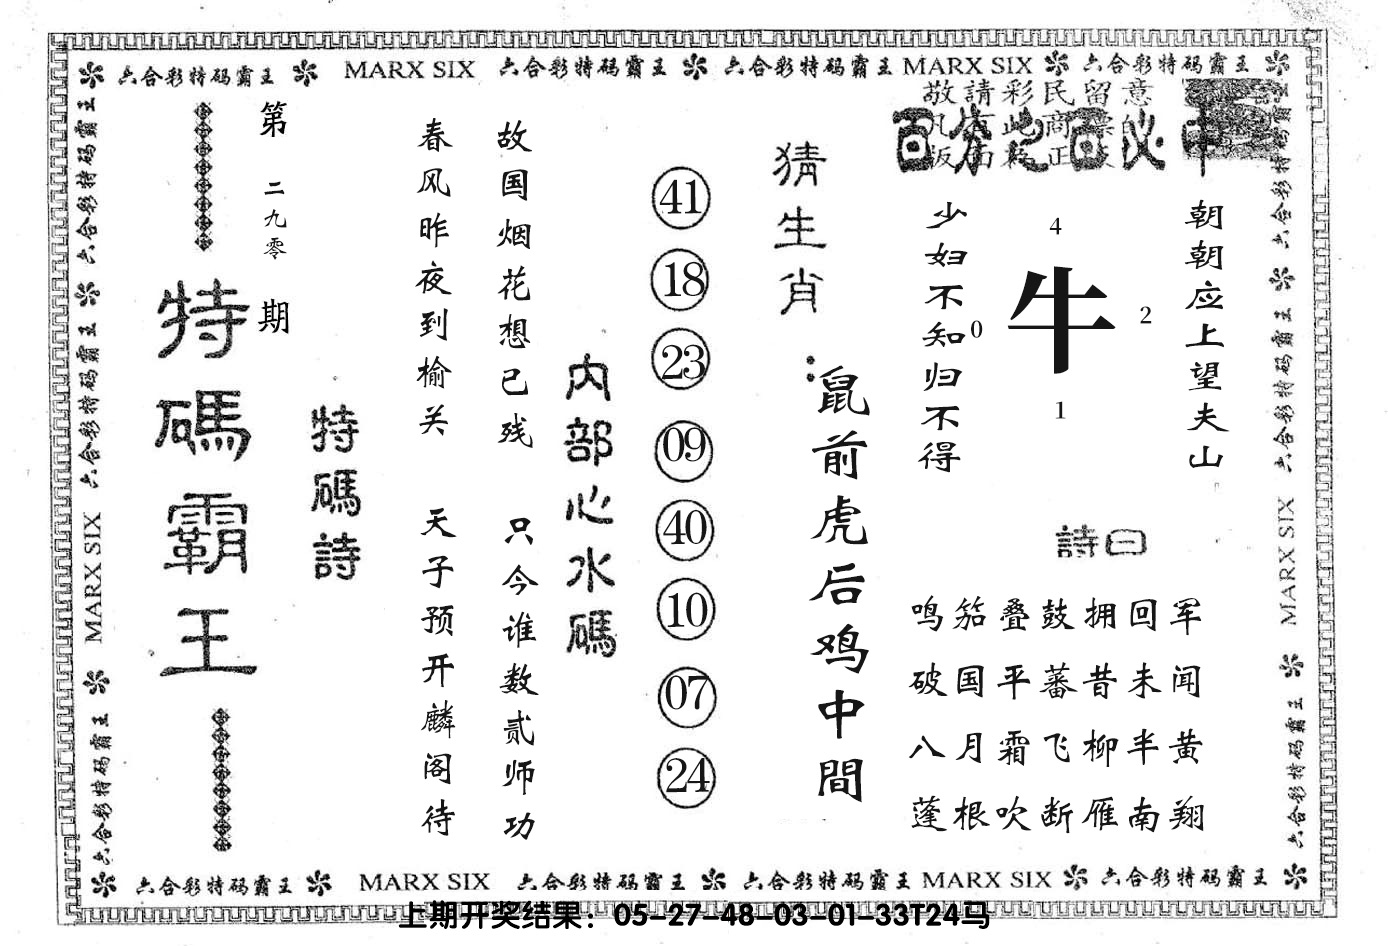 六合彩特码霸王 MARX SIX 六合彩特码霸王 六合彩特码霸王 MARX SIX 六合彩特码霸王
六合彩特码霸王 六合彩特码霸王 MARX SIX 六合彩特码霸王
第二九零期
特碼霸王
特碼詩
春风昨夜到榆关 天子预开麟阁待
故国烟花想已残 只今谁数贰师功
内部心水碼
41
18
23
09
40
10
07
24
猜生肖:
鼠前虎后鸡中間
敬請彩民留意
百分之百必中
少妇不知归不得
4
0
牛
2
1
朝朝应上望夫山
詩曰
鸣笳叠鼓拥回军
破国平蕃昔未闻
八月霜飞柳半黄
蓬根吹断雁南翔
六合彩特码霸王 六合彩特码霸王 MARX SIX 六合彩特码霸王
六合彩特码霸王 MARX SIX 六合彩特码霸王 六合彩特码霸王 MARX SIX 六合彩特码霸王
上期开奖结果：05-27-48-03-01-33T24马